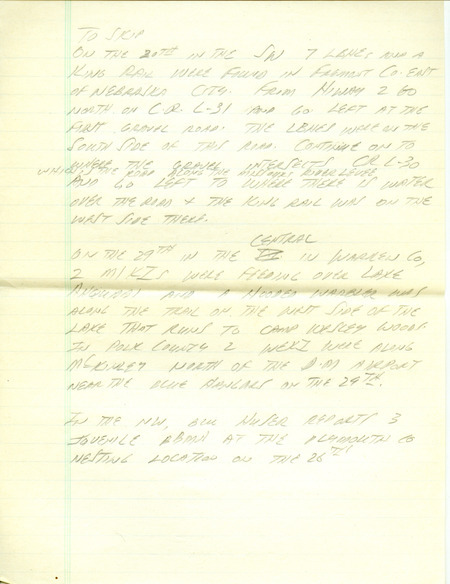 TO SKIP
ON THE 20TH IN THE SW 7 LBHES AND A
KING RAIL WERE FOUND IN FREMONT CO. EAST
OF NEBRASKA CITY. FROM HIWAY 2 GO
NORTH ON C.R. L-31 AND GO LEFT AT THE
FIRST GRAVEL ROAD. THE LBHES WERE ON THE
SOUTH SIDE OF THIS ROAD. CONTINUE ON TO
WHERE THE GRAVEL INTERSECTS CR L-30
WHICH IS THE ROAD ALONG THE MISSOURI RIVER LEVEE
AND GO LEFT TO WHERE THERE IS WATER
OVER THE ROAD + THE KING RAIL WAS ON THE
WEST SIDE THERE.
CENTRAL
ON THE 29TH IN THE IN WARREN CO,
2 MIKIS WERE FEEDING OVER LAKE
AHQUABI AND A HOODED WARBLER WAS
ALONG THE TRAIL ON THE WEST SIDE OF THE
LAKE THAT RUNS TO CAMP WESLEY WOODS.
IN POLK COUNTY 2 WEKI WERE ALONG
McKINLEY NORTH OF THE D-M AIRPORT
NEAR THE BLUE HANGARS ON THE 29TH.
IN THE NW, BILL HUSER REPORTS 3
JUVENILE BBMA AT THE PLYMOUTH CO
NESTING LOCATION ON THE 26TH